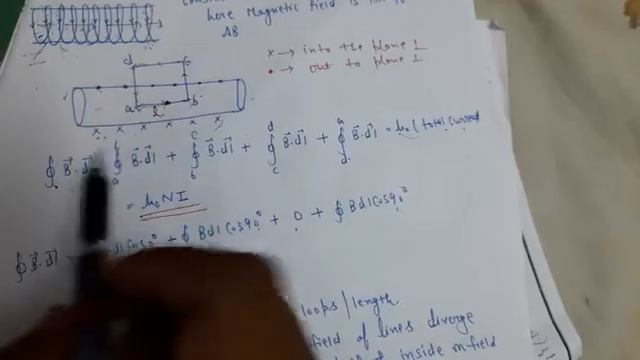 here Magnetic field is
AB
x → into the plane ⊥
• → out to plane ⊥
d c
a b
x x x x x x
∮ B⃗·dl⃗ ∮ₐᵇ B⃗·dl⃗ + ∮_b^c B⃗·dl⃗ + ∮_c^d B⃗·dl⃗ + ∮_d^a B⃗·dl⃗ = μ₀ (total current
= μ₀ N I
∮ B⃗·dl⃗ dl cos 0° + ∮ B dl cos 90° + 0 + ∮ B dl cos 90°
loops / length
field of lines diverge
inside m·field